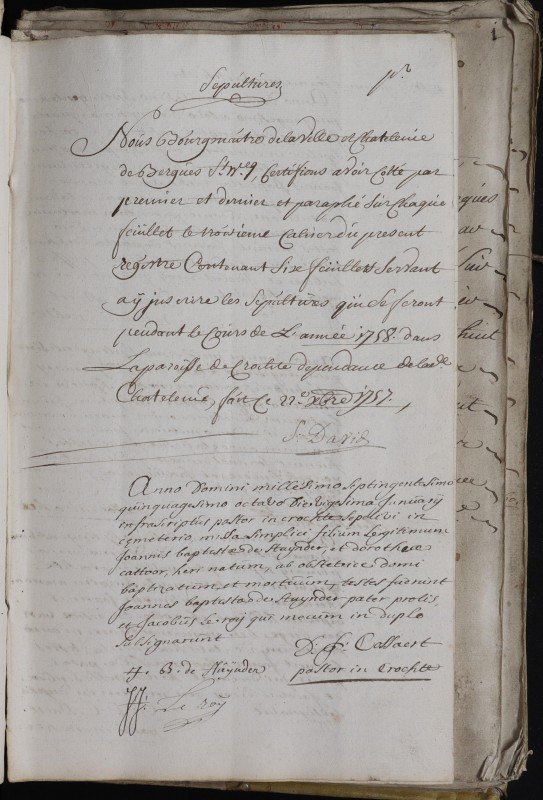 1
Sepultures pr
Nous Bourgmaitre de la ville et Chatelenie
de Bergues St. W. certifions avoir cotté par
premier et dernier et paraphé sur chaque
feuillet le troisieme cahier du present
registre contenant six feuillets servant
a ÿ inscrire les sepultures qui se feront
pendant le cours de L'année 1758. dans
La paroisse de Crochte dependance de lad.e
Chatelenie, fait ce xbre 1757.
David
Anno Domini millesimo septingentesimo
quinquagesimo octavo Die vigesima Januarÿ
infrascriptus pastor in crochte sepelivi in
cemeterio missa simplici filium Legitimum
Joannis baptistæ de Stuÿnder, et dorotheæ
cattoor, heri natum, ab obstetrice domi
baptizatum, et mortuum, testes fuerunt
Joannes baptista de Stuÿnder pater prolis,
et Jacobus Le roÿ qui mecum in duplo
subsignarunt
D: fr: Callaert
pastor in Crochte
B. de Stuÿnder
Le Roÿ